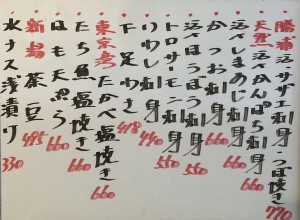 勝浦活サザエ刺身・つぼ焼き 770
天然活〆かんぱち刺身 660
活〆しまあじ刺身 660
かつお刺身 550
活ホヤ刺身 550
トロサーモン刺身 550
いわし刺身 440
下足わさ 418
東京湾たかべ塩焼き 660
たち魚塩焼き 660
はも天ぷら 660
新潟茶豆 495
水ナス浅漬り 330